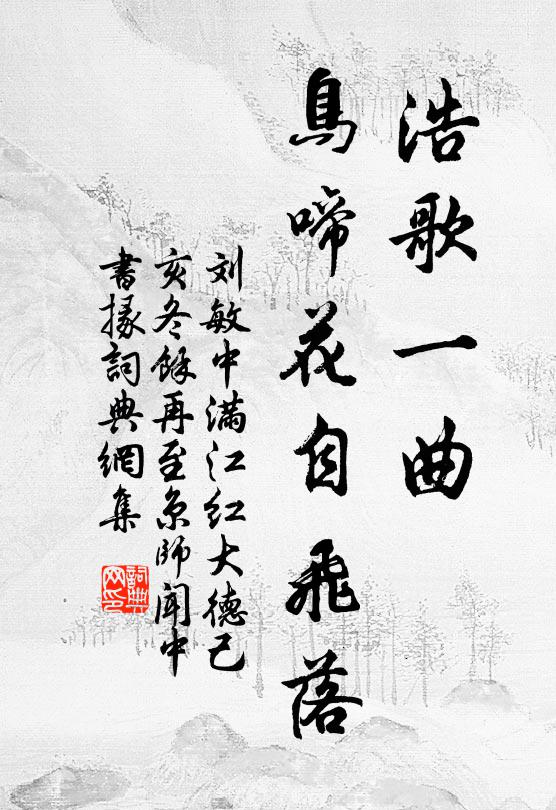 浩歌一曲
鳥啼花自飛落
刘敏中满江红大德己
亥冬餘再至京師聞中
書掾詞典網集
詞典网印